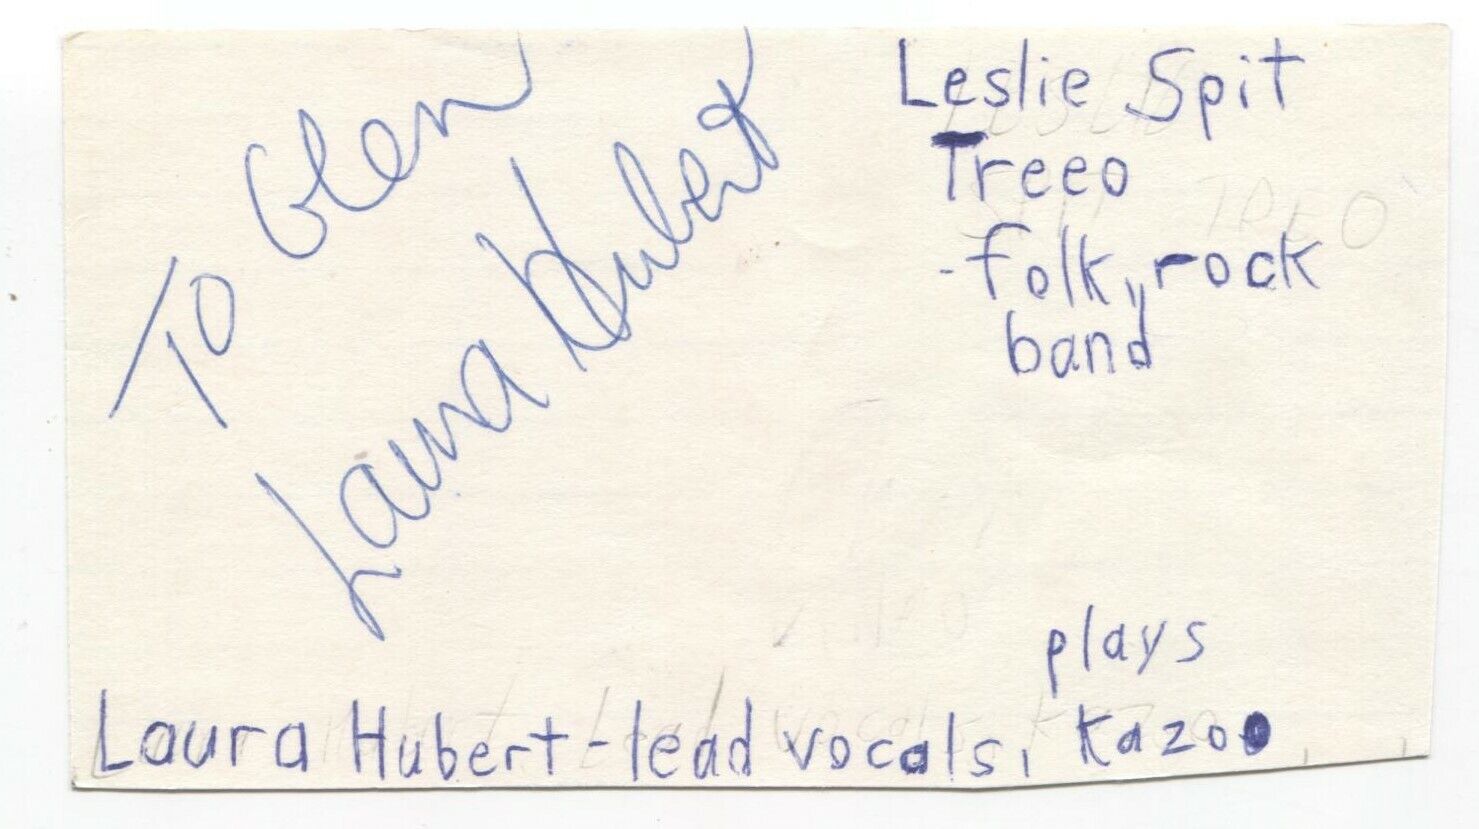 To Glen
Laura Hubert
Leslie Spit
Treeo
- folk, rock
band
plays
Laura Hubert - lead vocals, kazoo